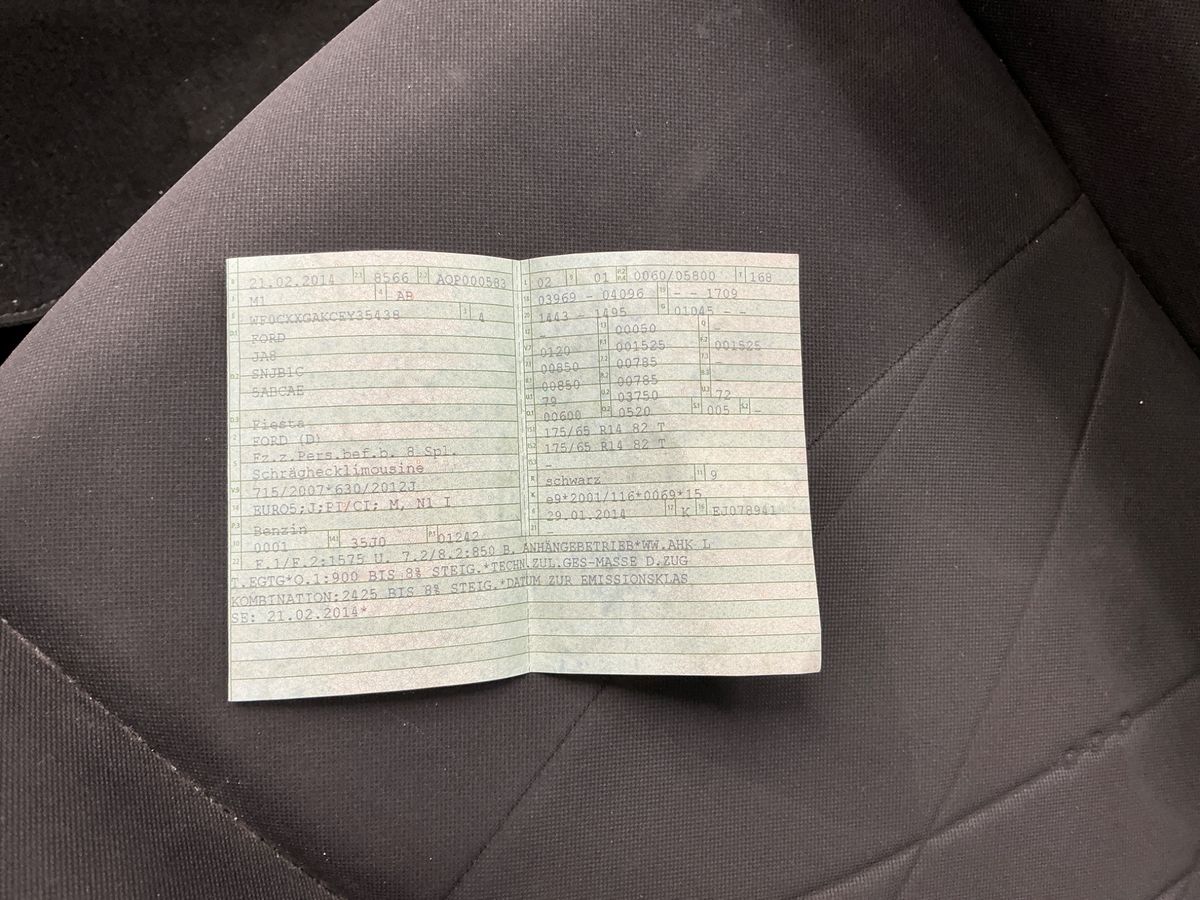 B 21.02.2014 2.1 8566 2.2 AQP000583
J M1 4 AB
E WF0CXXGAKCEY35438 3 4
D.1 FORD
JA8
D.2 SNJB1C
5ABCAE
D.3 Fiesta
2 FORD (D)
5 Fz.z.Pers.bef.b. 8 Spl.
Schräghecklimousine
V.9 715/2007*630/2012J
14 EURO5;J;PI/CI; M, N1 I
P.3 Benzin
10 0001 14.1 35J0 P.1 01242
L 02 9 01 P.2 P.4 0060/05800 T 168
18 03969 - 04096 19 - - 1709
20 1443 - 1495 G 01045 - -
12 - 13 00050 Q -
V.7 0120 F.1 001525 F.2 001525
7.1 00850 7.2 00785 7.3
8.1 00850 8.2 00785 8.3
U.1 79 U.2 03750 U.3 72
O.1 00600 O.2 0520 S.1 005 S.2 -
15.1 175/65 R14 82 T
15.2 175/65 R14 82 T
15.3 -
R schwarz 11 9
K e9*2001/116*0069*15
6 29.01.2014 17 K 16 EJ078941
21 -
22 F.1/F.2:1575 U. 7.2/8.2:850 B. ANHÄNGEBETRIEB*WW.AHK L
T.EGTG*O.1:900 BIS 8% STEIG.*TECHN.ZUL.GES-MASSE D.ZUG
KOMBINATION:2425 BIS 8% STEIG.*DATUM ZUR EMISSIONSKLAS
SE: 21.02.2014*